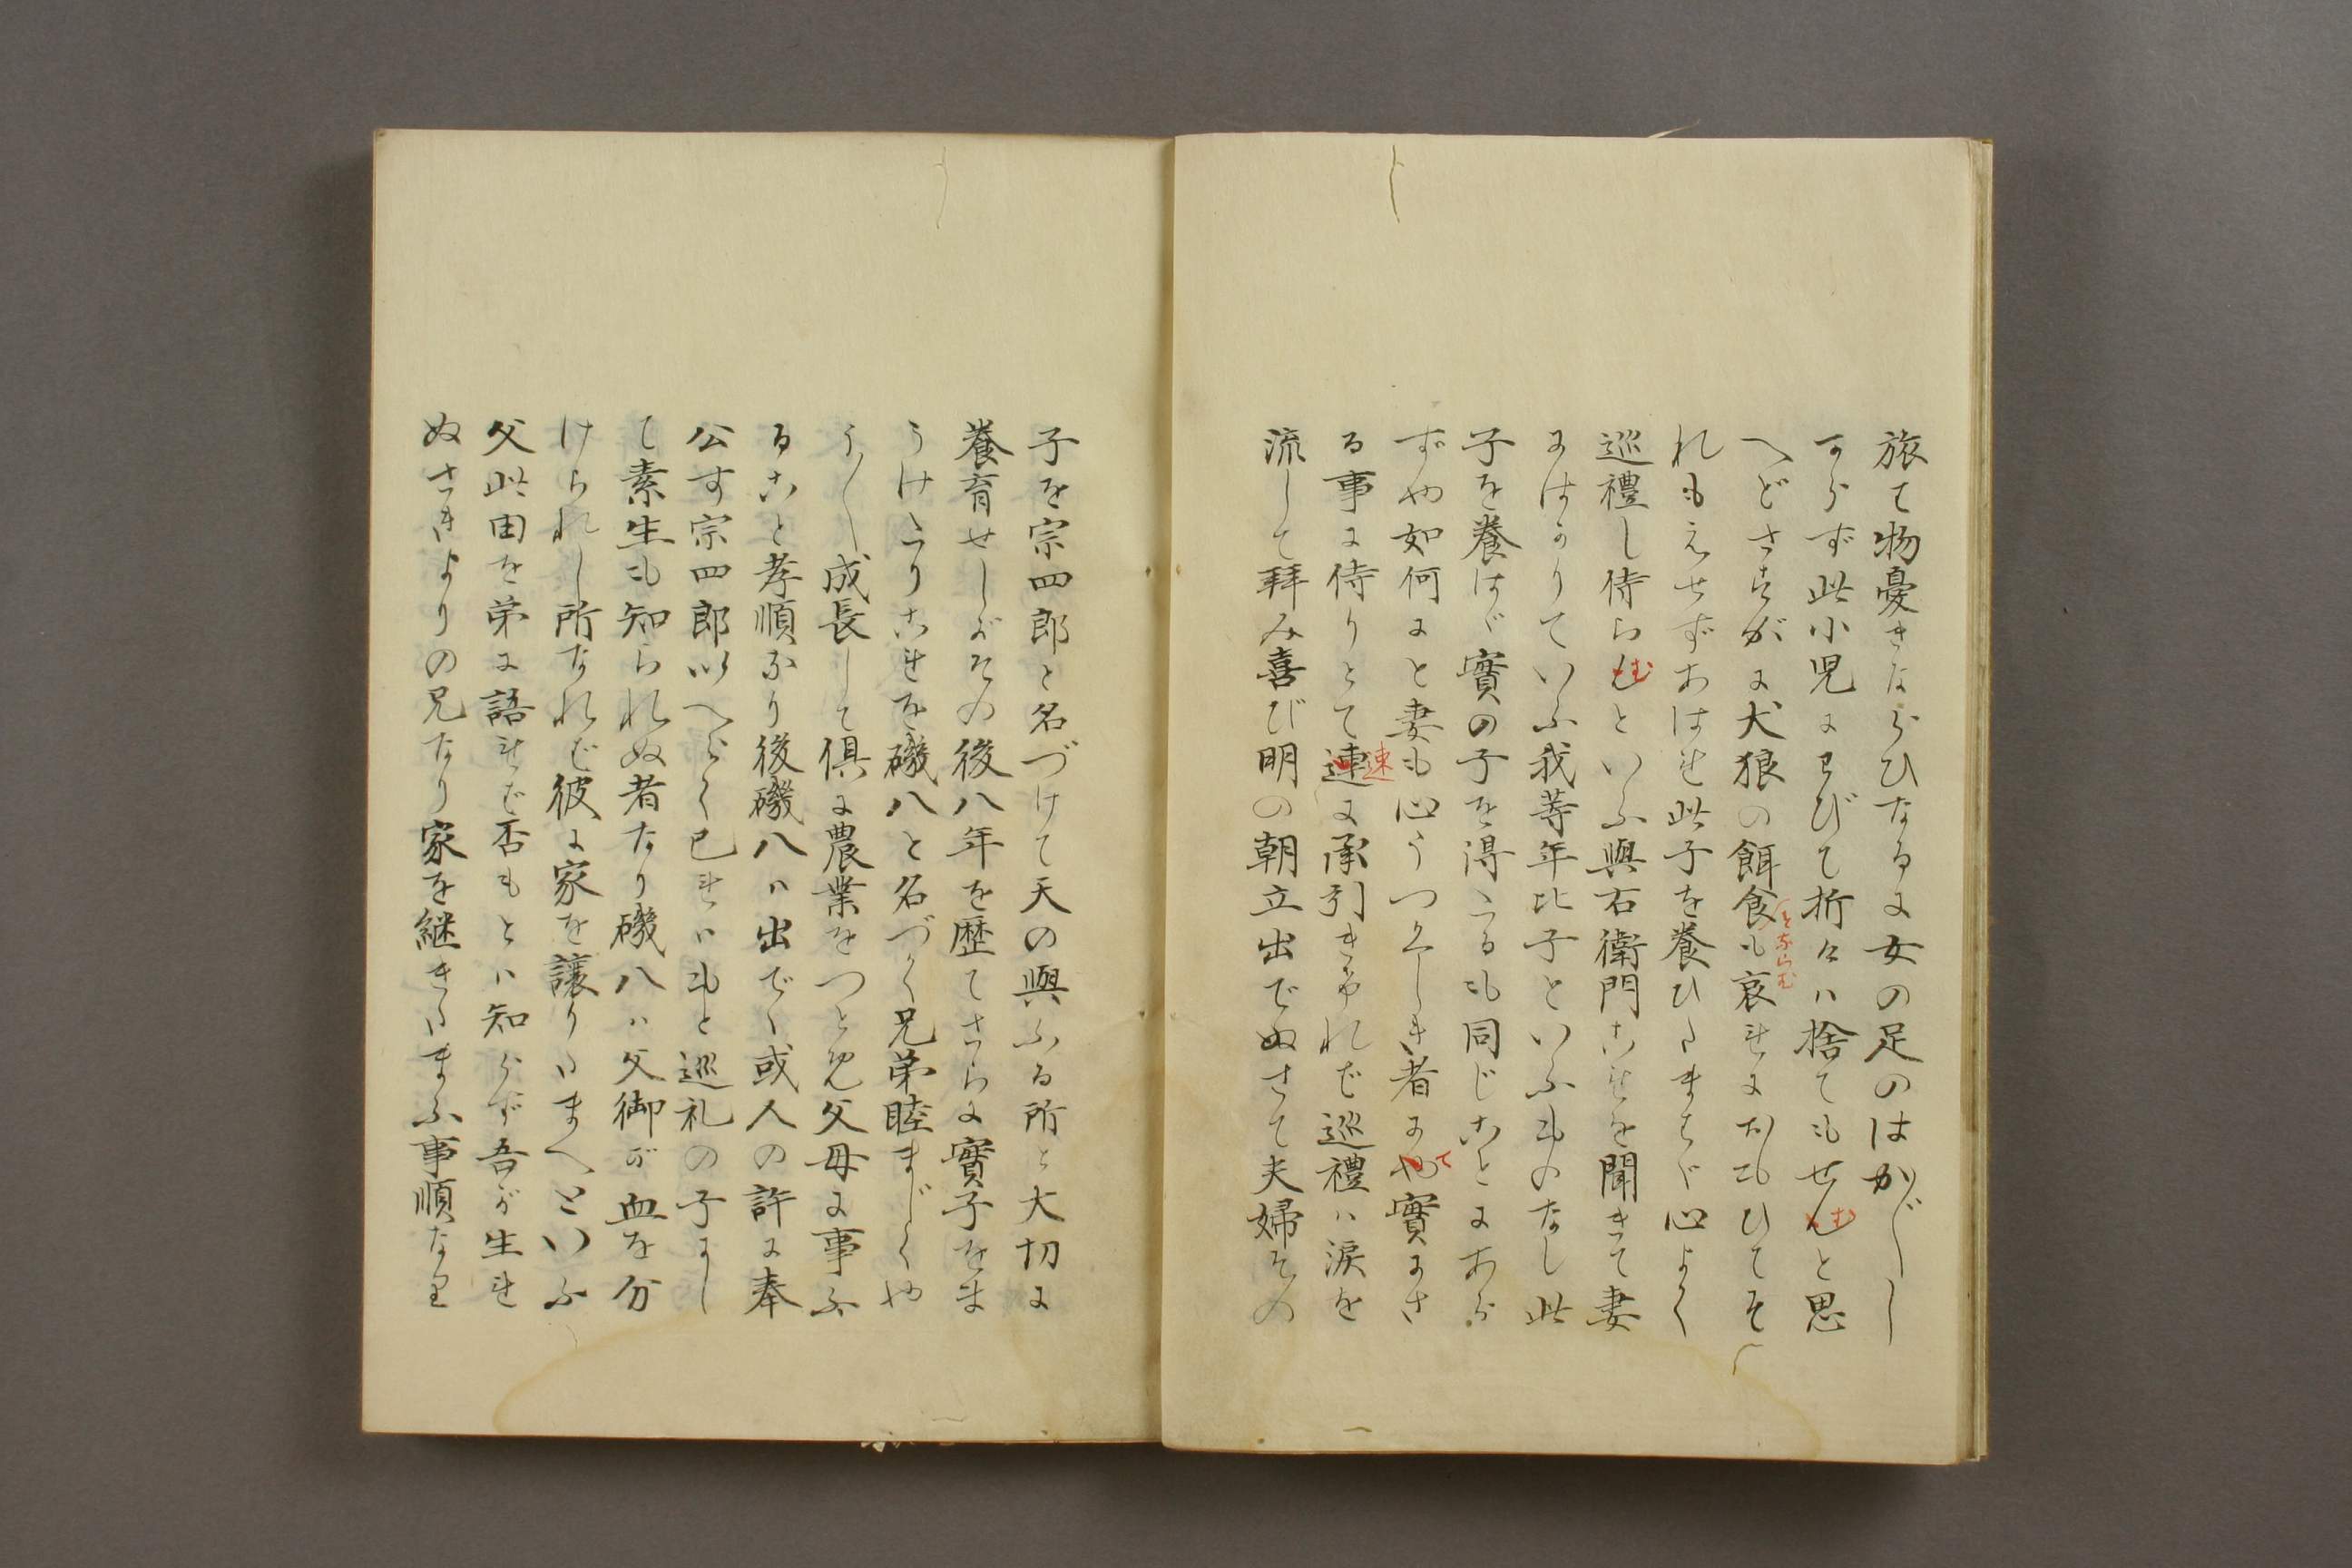 旅て物憂きならひなるに女の足のはか〲し
からず此小児にわびて折々ハ捨てもせんむと思
へどさすがに犬狼の餌食とならむも哀せにおもひてそ
れもえせずあはせ此子を養ひたまはゞ心よく
巡禮し侍らんむといふ與右衛門こせを聞きて妻
にはかりていふ我等年比子といふものなし此
子を養はゞ實の子を得たるも同じことにあら
ずや如何にと妻も心うつくしき者にやて實にさ
る事に侍りとて連速に承引きければ巡禮ハ涙を
流して拜み喜び明の朝立出でぬさて夫婦その
子を宗四郎と名づけて天の與ふる所と大切に
養育せしがその後八年を歴てさらに實子をま
うけたりこせを磯八と名づく兄弟睦ましくや
う〱成長して倶に農業をつとめ父母に事ふ
ること孝順なり後磯八ハ出でゝ或人の許に奉
公す宗四郎いへらく己せハもと巡礼の子にし
て素生も知られぬ者なり磯八ハ父御が血を分
けられし所なれば彼に家を譲りたまへといふ
父此由を弟に語せば否もとハ知らず吾が生せ
ぬさきよりの兄なり家を継きたまふ事順なり